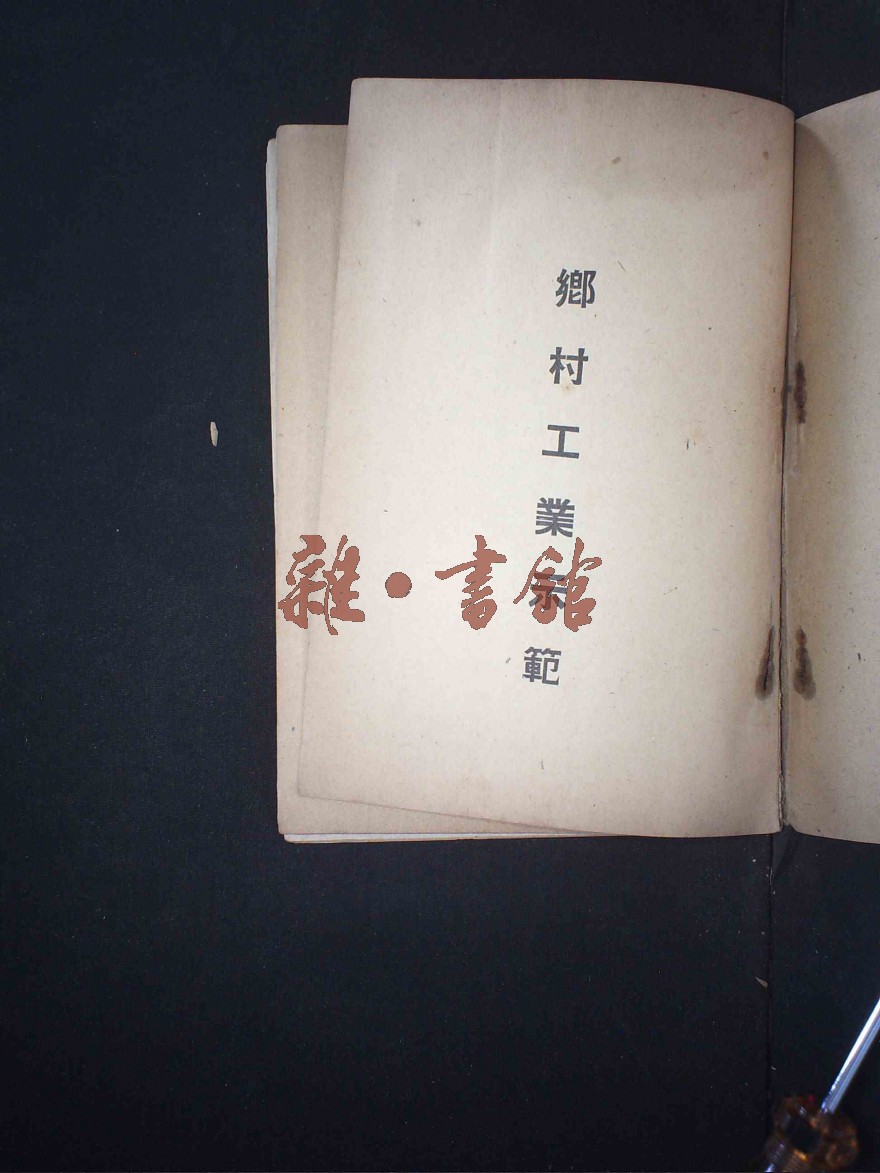 鄉村工業示範
雜·書館